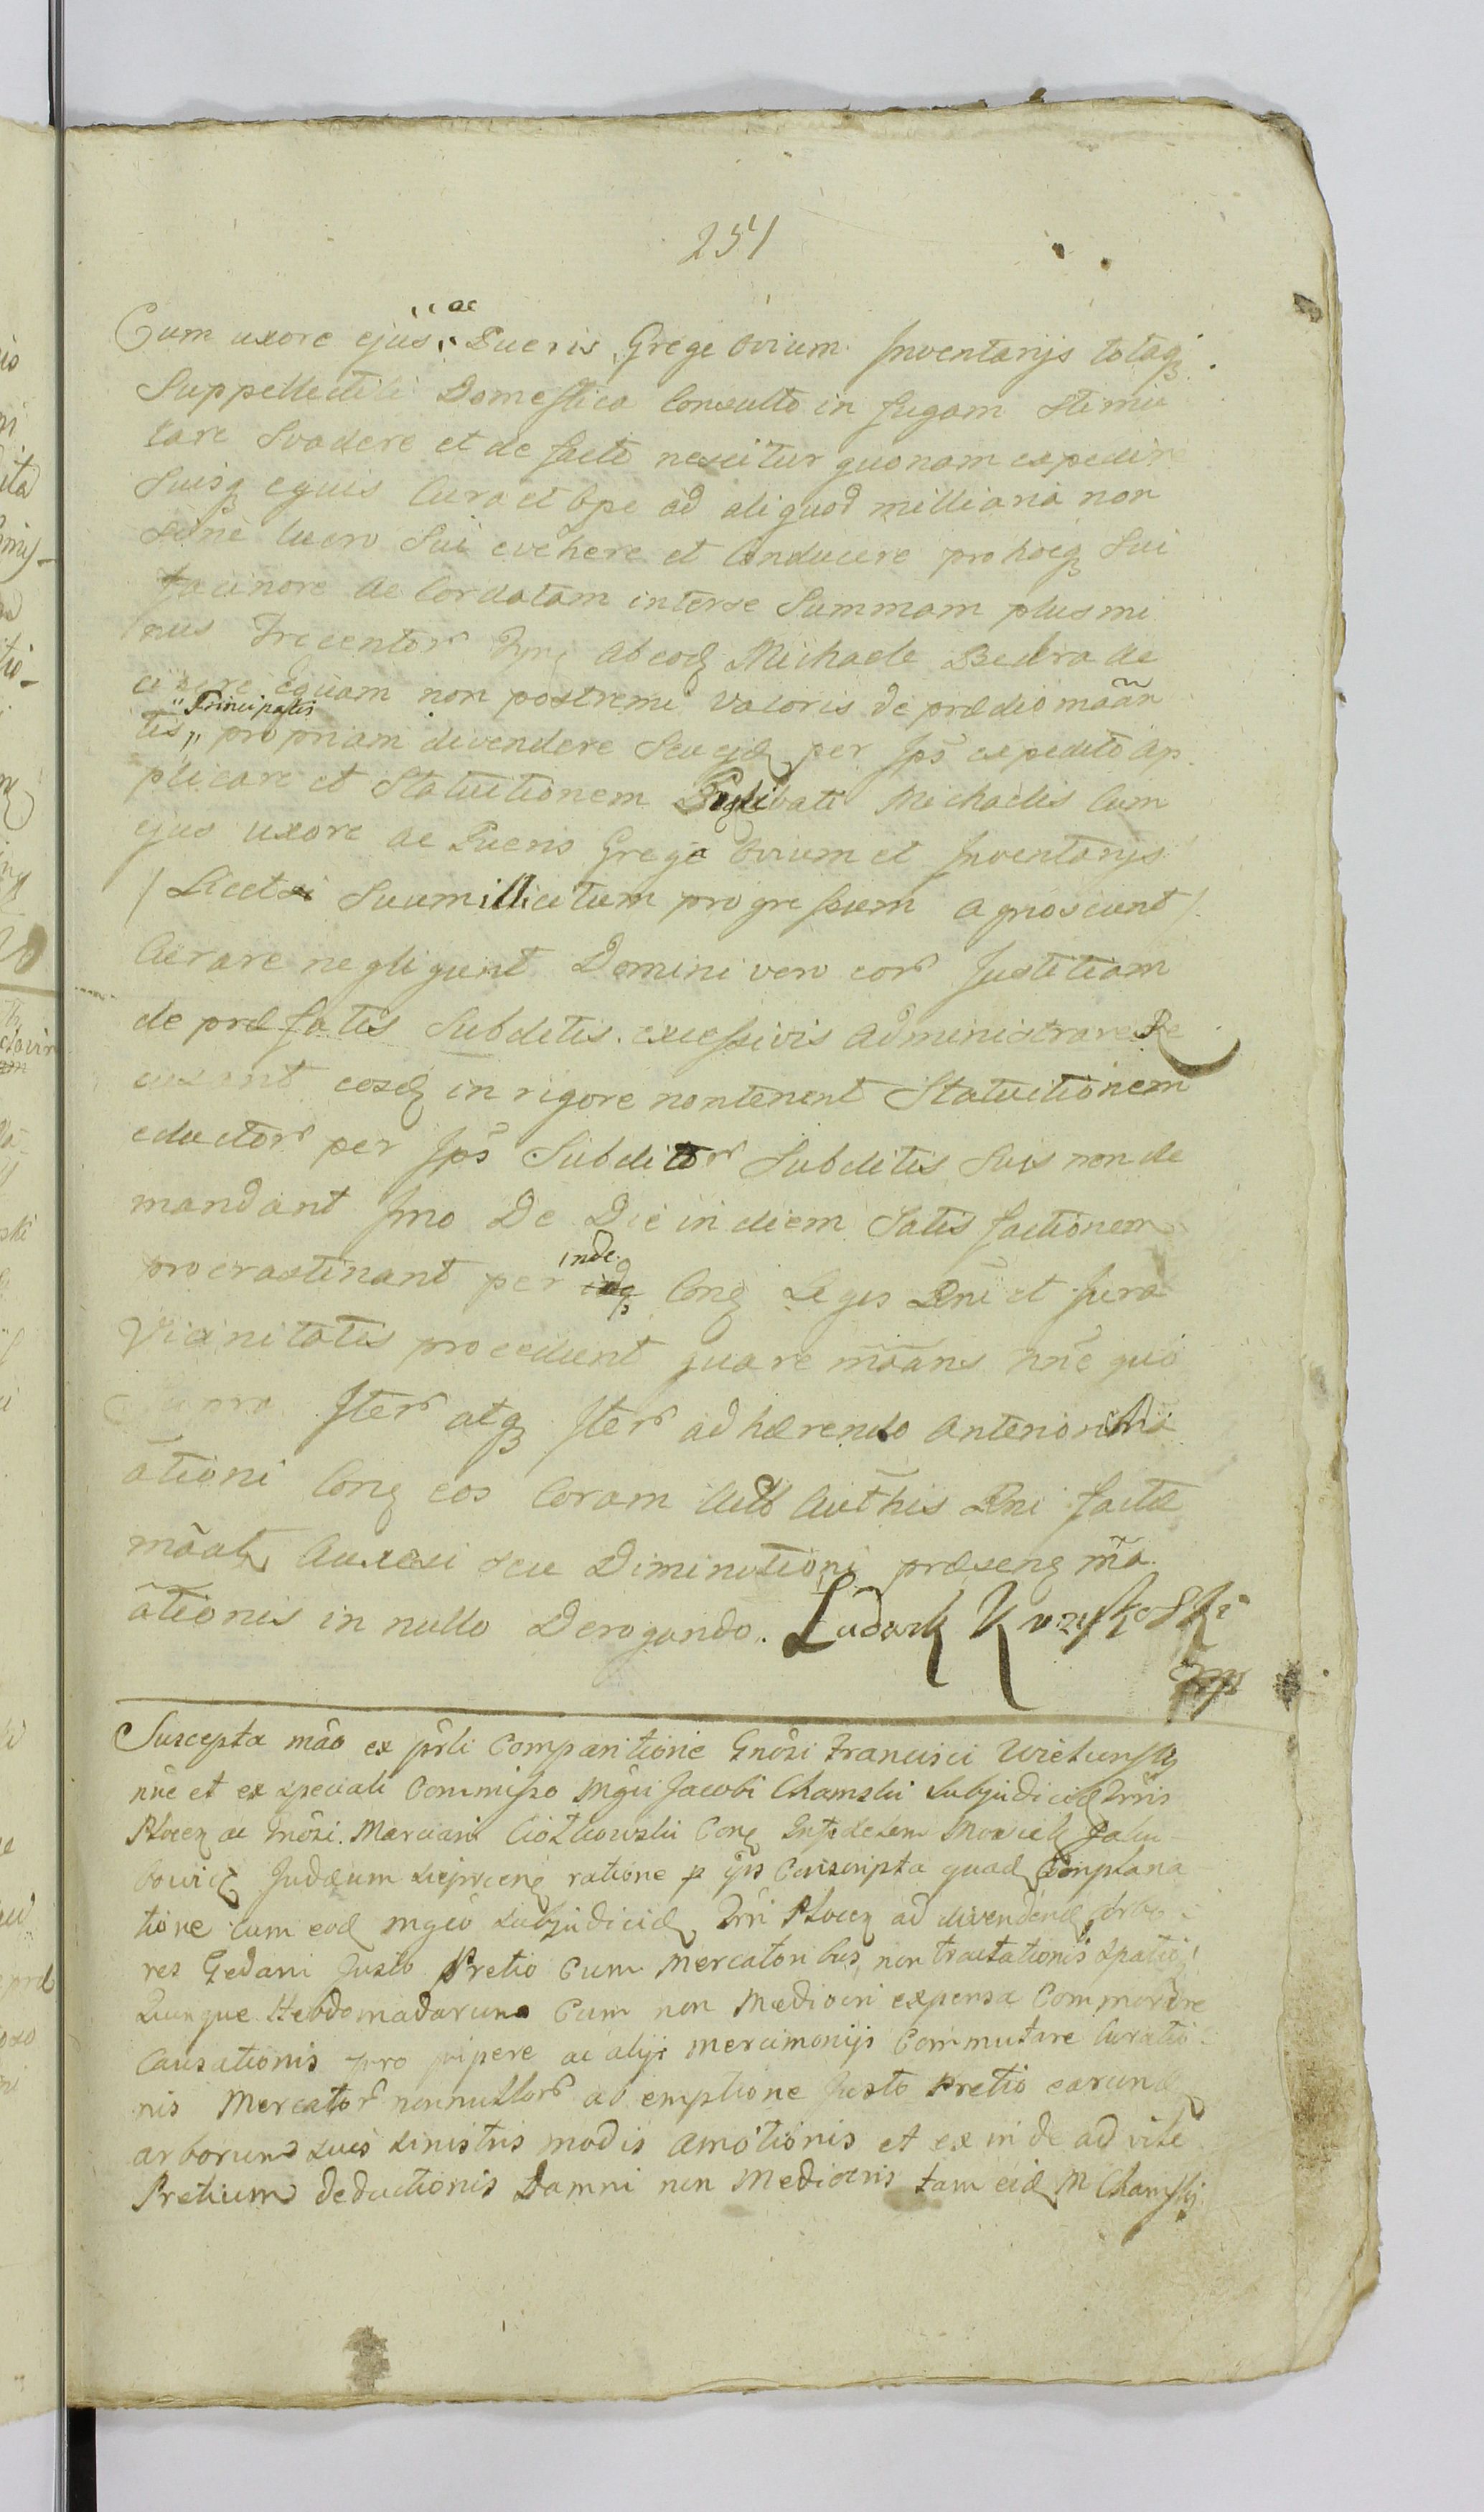 251
Cum uxore ejus „ ac Pueris Grege Ovium Inventarijs totaq
Suppellectili Domestica Consulto in fugam Stimu
lare Svadere et de facto nescitur quonam expedire
Suisq equis Cura et Ope ad aliquod milliaria non
sine lucro Sui evehere et Conducere pro hocq Sui
facinore ac Cordatam interse Summam plus mi
nus Trecentor ab eod Michaele Bedra ac
cipere Equam non postremi valoris de prædio mãan
tis „ Principalis „ propriam divendere Seu ejd per Ips expedito ap
plicare et Statuitionem Prælibati Michaelis Cum
ejus uxore ac Pueris Grege Ovium et Inventarijs
/ Licet Suum illicitum progressum agnoscunt /
Curare negligunt Domini vero eor Justitiam
de præfatis Subditis excessivis administrare Re
cusant eosd in rigore non tenent Statuitionem
eductor per Ips Subditor Subditis Suis non de
mandant Imo De Die in diem Satis factionem
procrastinant per inde Cong Leges Rni et Jura
Vicinitatis procedunt quare mãans nne quo
Iter atq Iter adhærendo anteriori Ma
ãtioni Cong eos Coram Authis Rni factæ
mãat Auxesi seu Diminutioni præseng mã
ãtionis in nullo Derogando. Ludwik
mp
Suscepta mão ex prli Comparitione Gnosi Francisci
nne et ex speciali Commisso Mgci Jacobi Chamski Subjudicis Trris
Plocen ac Gnosi Marciani Ciołkowski Cong Infidelem
Judæum ratione p ips Conscripta quad Complana
tione Cum eod mgco Subjudicid Trri Plocen ad divendend arbo
res Gedani Justo Pretio Cum Mercatoribus, non tractationis Spatio
Quinque Hebdomadarum Cum non Mediocri expensa Commoræ
Causationis pro pipere ac alijs mercimonijs Commutare Curatio
nis Mercator nonnullor ab emptione Justo Pretio earund
arborum suis sinistris modis amotionis et ex in de ad vile
Pretium deductionis Damni non Mediocris tam eid M Chamski